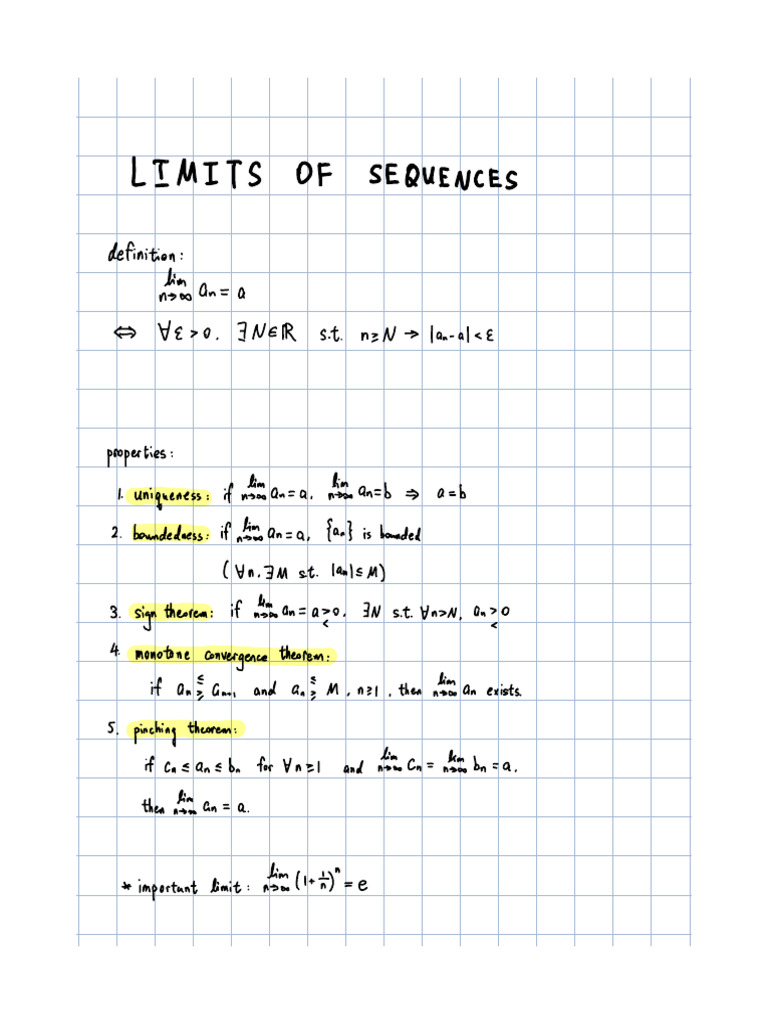 LIMITS OF SEQUENCES
definition:
lim n→∞ an = a
⇔ ∀ε > 0. ∃N∈ℝ s.t. n≥N → |an-a| < ε
properties:
1. uniqueness: if lim n→∞ an = a, lim n→∞ an = b ⇒ a = b
2. boundedness: if lim n→∞ an = a, {an} is bounded
(∀n, ∃M s.t. |an| ≤ M)
3. sign theorem: if lim n→∞ an = a > 0, ∃N s.t. ∀n>N, an > 0
< <
4. monotone convergence theorem:
if an ≤≥ an+1 and an ≤≥ M, n≥1, then lim n→∞ an exists.
5. pinching theorem:
if cn ≤ an ≤ bn for ∀n≥1 and lim n→∞ cn = lim n→∞ bn = a,
then lim n→∞ an = a.
* important limit: lim n→∞ (1+1/n)^n = e